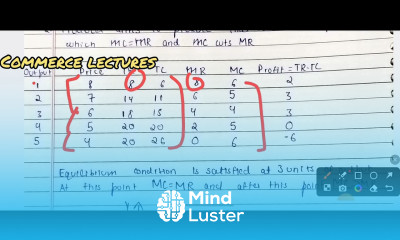 which MC=MR and MC cuts MR
Commerce lectures
Output Price TC MR MC Profit = TR-TC
1 8 8 6 8 6 2
2 7 14 11 6 5 3
3 6 18 15 4 4 3
4 5 20 20 2 5 0
5 4 20 26 0 6 -6
Equilibrium condition is satisfied at 3 units
At this point MC=MR and after this
Mind
Luster